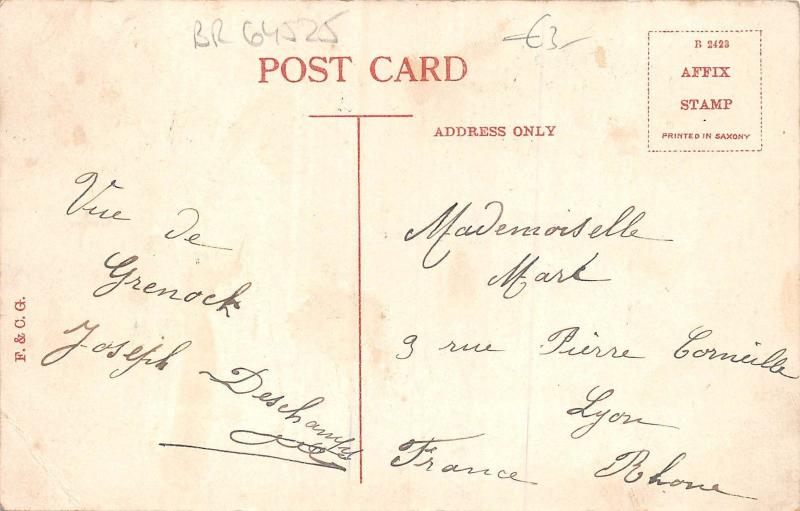 BR 64525
€3-
POST CARD
B 2423
AFFIX
STAMP
PRINTED IN SAXONY
ADDRESS ONLY
Vue de
Grenock
Joseph Deschamps
F. & C. G.
Mademoiselle
Mare
9 rue Pierre Corneille
Lyon
France Rhone